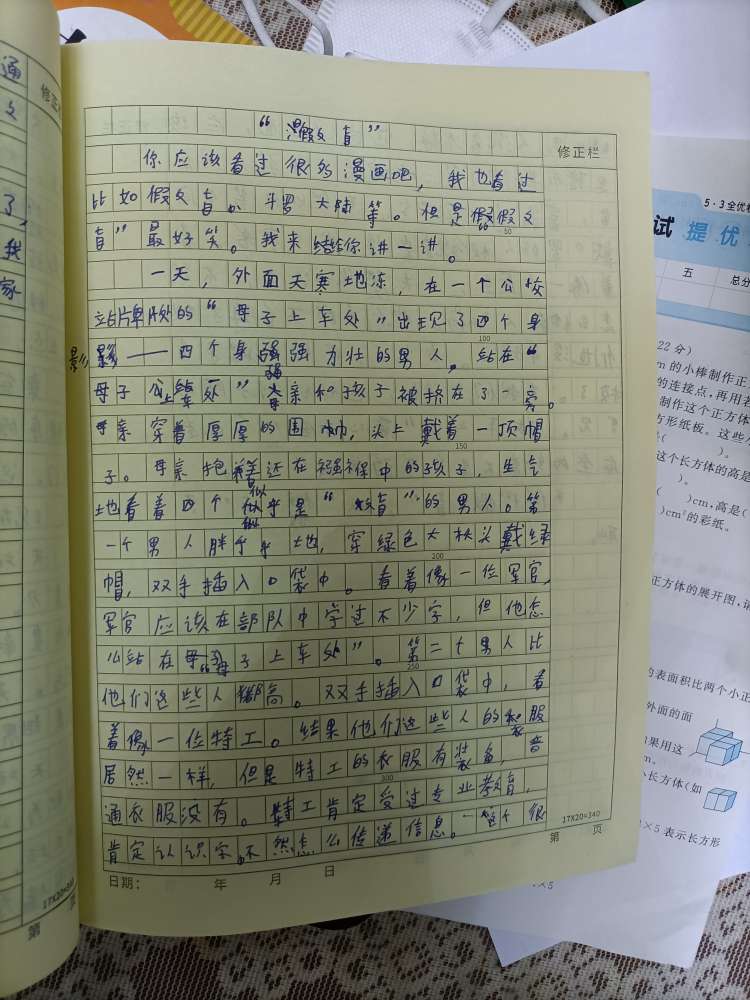 通
文
了,
我
家
修正栏
17X20=340
第 页
“假文盲”
修正栏
你应该看过很多漫画吧,我也看过
比如假文盲、斗罗大陆等。但是“假文
盲”最好笑。我来给你讲一讲。
一天,外面天寒地冻,在一个公校
站牌处的“母子上车处”出现了四个身
影——四个身强力壮的男人。站在“
母子上车处”母亲和孩子被挤在了一旁。
母亲穿着厚厚的围巾,头上戴着一顶帽
子。母亲抱着还在襁褓中的孩子,生气
地看着四个似乎是“文盲”的男人。第
一个男人胖乎乎地,穿绿色大
戴绿
帽,双手插入口袋中。看着像一位军官,
军官应该在部队中学过不少字,但他怎
么站在“母子上车处”。第二个男人比
他们这些人都高。双手插入口袋中,看
着像一位特工。结果他们这些人的衣服
居然一样,但是特工的衣服有装备,普
通衣服没有。特工肯定受过专业教育,
肯定认识字。不然怎么传递信息。这个很
50
100
150
200
250
300
17X20=340
日期: 年 月 日
第 页
5·3全优
试 提优
五
总分
22分)
cm的小棒制作正
的连接点,再用若
制作这个正方体
方形纸板。这些
( )。
这个长方体的高是
( )。
( )cm,高是(
)cm²的彩纸。
正方体的展开图,请
的表面积比两个小正
外面的面
果用这
m。
小长方体(如
×5表示长方形
×5